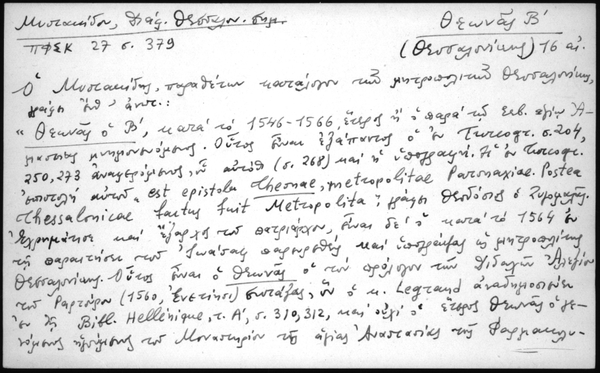 Μυστακίδου, Διάφ. Θεσσαλον. σημ.
Θεωνᾶς Β'
ΠΦΣΚ 27 σ. 379
(Θεσσαλονίκης) 16 αἰ.
Ὁ Μυστακίδης, παραθέτων κατάλογον τῶν μητροπολιτῶν Θεσσαλονίκης,
γράφει ἐνθ' ἀνωτ.:
« Θεωνᾶς ὁ Β', κατὰ τὸ 1546-1566, ἕτερος ἢ ὁ παρὰ τῷ
μνημονευόμενος. Οὗτος εἶναι ὁ ἐν Turcogr. σ. 204,
250, 273 ἀναφερόμενος, αὐτόθι (σ. 268) καὶ ἡ ὑπογραφή. ἐν Turcogr.
ἐπιστολὴ αὐτοῦ "est epistola Theonae, metropolitae Paronaxiae. Postea
Thessalonicae factus fuit Metropolita", γράφει Θεοδόσιος ὁ Ζυγομαλᾶς.
Ἐχρημάτισε καὶ ἔξαρχος τοῦ πατριάρχου, εἶναι δὲ ὁ κατὰ τὸ 1564 ἐν
τῇ παραιτήσει τοῦ Ἰωάσαφ παρευρεθεὶς καὶ ὑπογράψας ὡς μητροπολίτης
Θεσσαλονίκης. Οὗτος εἶναι ὁ Θεωνᾶς ὁ τὸν πρόλογον τῶν Διδαχῶν Ἀλεξίου
τοῦ Ραρτούρου (1560, Ἐνετίῃσι) συντάξας, ὃν ὁ κ. Legrand ἀναδημοσιεύει
ἐν τῇ Bibl. Hellénique, τ. Α', σ. 310, 312, καὶ οὐχὶ ὁ ἕτερος Θεωνᾶς ὁ γε-
νόμενος ἡγούμενος τοῦ Μοναστηρίου τῆς ἁγίας Ἀναστασίας τῆς Φαρμακολυ-